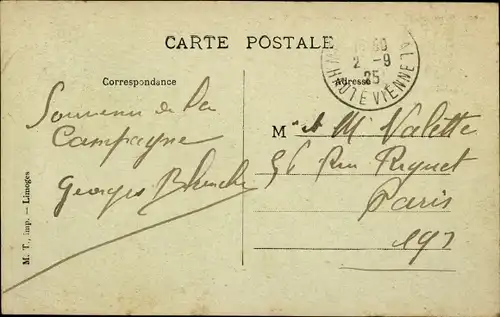 CARTE POSTALE
Correspondance
Adresse
2 -9
25
HAUTE VIENNE
Souvenir de la
Campagne
Georges
M et Mr Valette
56 Rue Riquet
Paris
19
M. T., imp. — Limoges